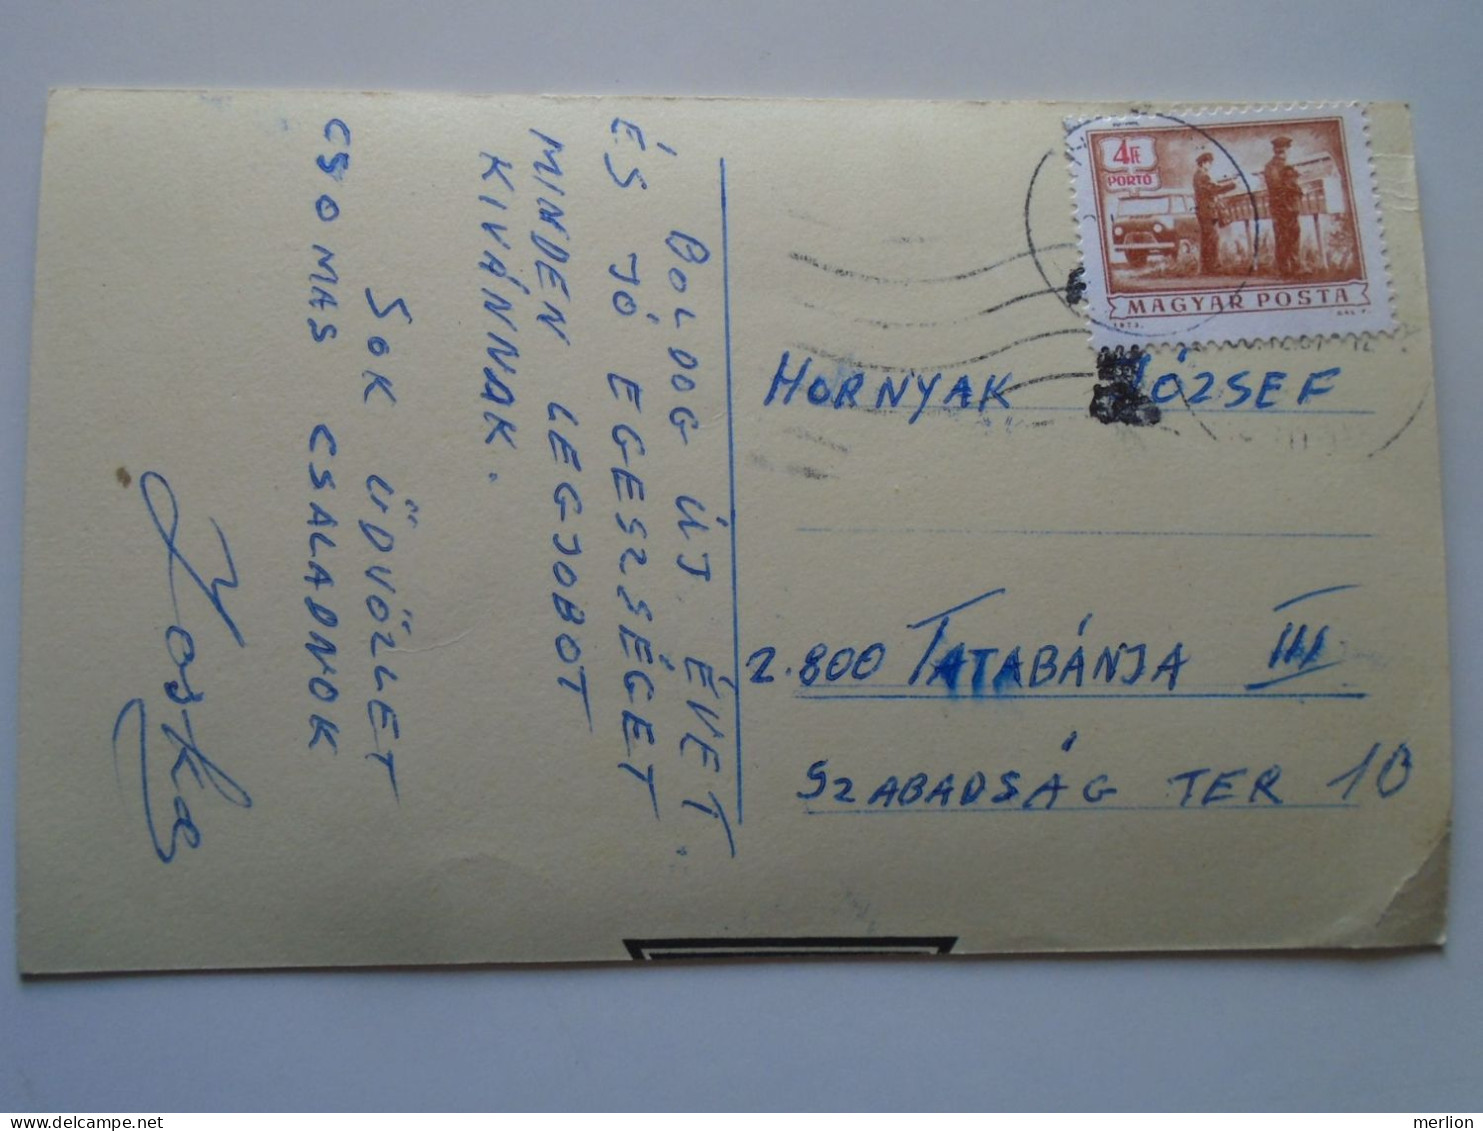 BOLDOG ÚJ. ÉVET.
ÉS JÓ EGESZSÉGET
MINDEN LEGJOBOT
KIVÁNNAK.
SOK ÜDVÖZLET
CSOMAS CSALADNOK
4Ft
PORTÓ
MAGYAR POSTA
1973.
HORNYAK JÓZSEF
2.800 TATABÁNJA III
SZABADSÁG TER 10
merlion